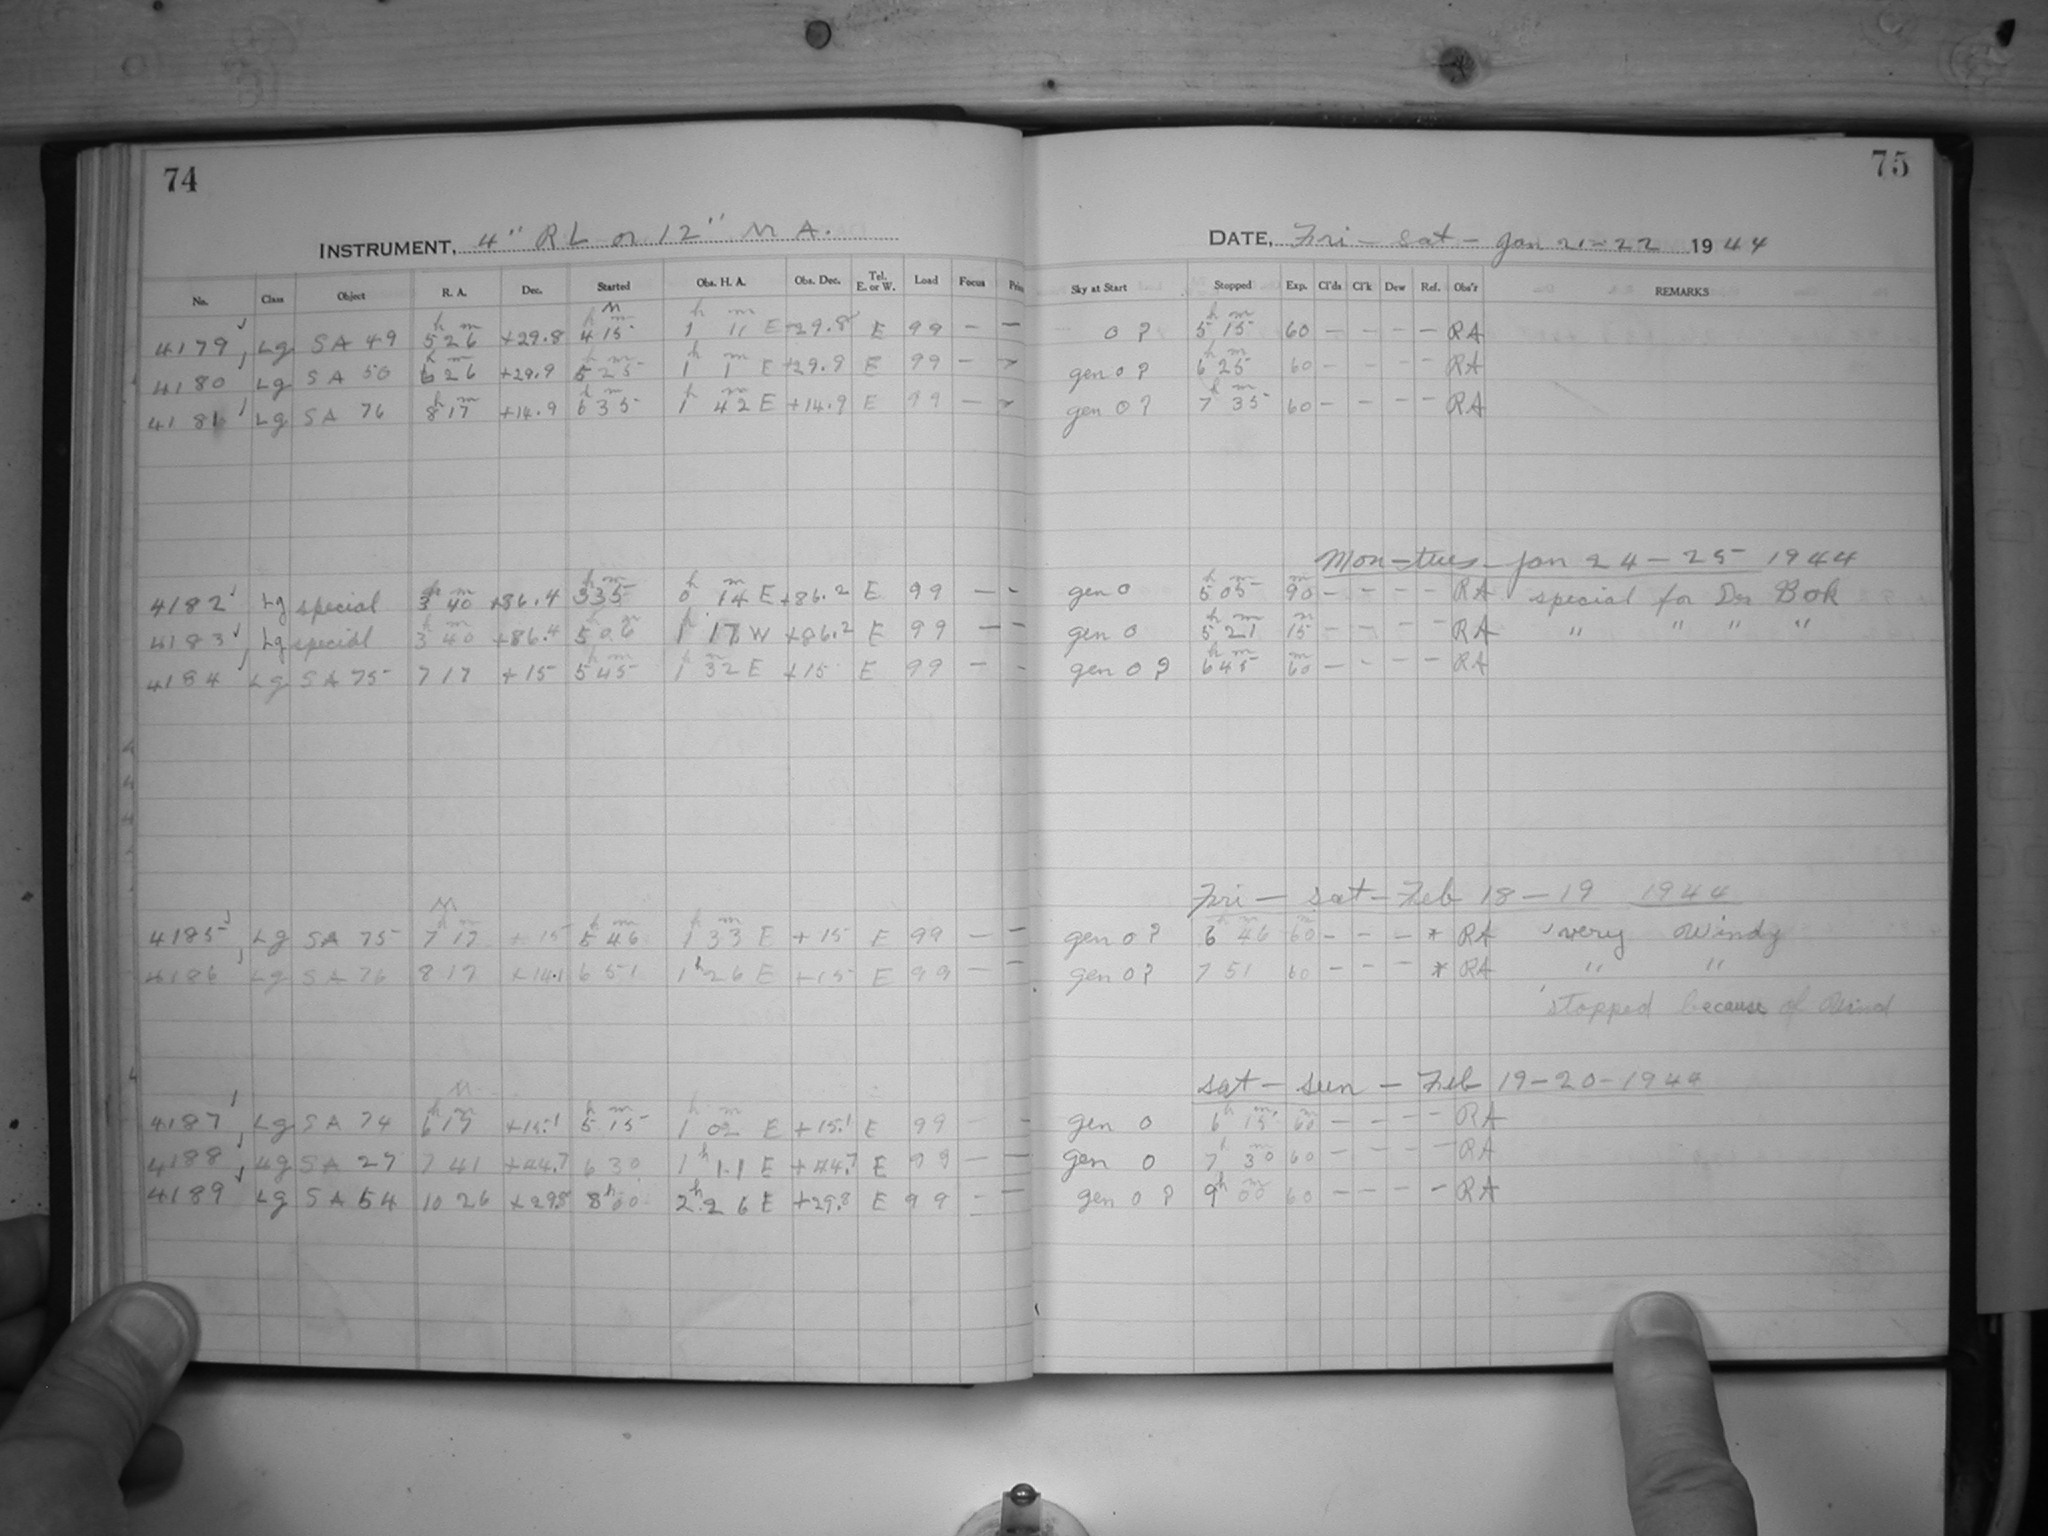 74
75
INSTRUMENT, 4" RL on 12" M A.
DATE, Fri - sat - Jan 21-22 1944
No. Class Object R. A. Dec. Started Obs. H. A. Obs. Dec. Tel. E. or W. Load Focus Sky at Start Stopped Exp. Cl'ds Cl'k Dew Ref. Obs'r REMARKS
4179 Lg SA 49 5h 26m +29.8 4h 15m 1h 11m E +29.8 E 99 - - 0 ? 5h 15m 60 - - - - RA
4180 Lg SA 50 6h 26m +29.9 5h 25m 1h 1m E +29.9 E 99 - - gen 0 ? 6h 25m 60 - - - - RA
4181 Lg SA 76 8h 17m +14.9 6h 35m 1h 42 E +14.9 E 99 - - gen 0 ? 7h 35m 60 - - - - RA
Mon - tues - Jan 24 - 25 1944
4182 Lg special 3h 40m +86.4 3h 35m 0h 14m E +86.2 E 99 - - gen 0 5h 05m 90m - - - - RA special for Dr Bok
4183 Lg special 3h 40m +86.4 5h 06m 1h 17 W +86.2 E 99 - - gen 0 5h 21m 15m - - - - RA " " " "
4184 Lg SA 75 7 17 +15 5h 45m 1h 32m E +15 E 99 - - gen 0 ? 6h 45m 60m - - - - RA
Fri - sat - Feb 18 - 19 1944
4185 Lg SA 75 7h 17m +15 5h 46m 1h 33m E +15 E 99 - - gen 0 ? 6h 46m 60m - - - * RA very windy
4186 Lg SA 76 8 17 +14.1 6 51 1h 26 E +15 E 99 - - gen 0 ? 7 51 60 - - - * RA " "
stopped because of wind
sat - sun - Feb 19 - 20 - 1944
4187 Lg SA 74 6h 17m +15.1 5h 15m 1h 02m E +15.1 E 99 - - gen 0 6h 15m 60m - - - - RA
4188 Lg SA 27 7 41 +44.7 6 30 1h 11 E +44.7 E 99 - - gen 0 7h 30m 60 - - - - RA
4189 Lg SA 54 10 26 +29.8 8h 00 2h 26 E +29.8 E 99 - - gen 0 ? 9h 00m 60 - - - - RA